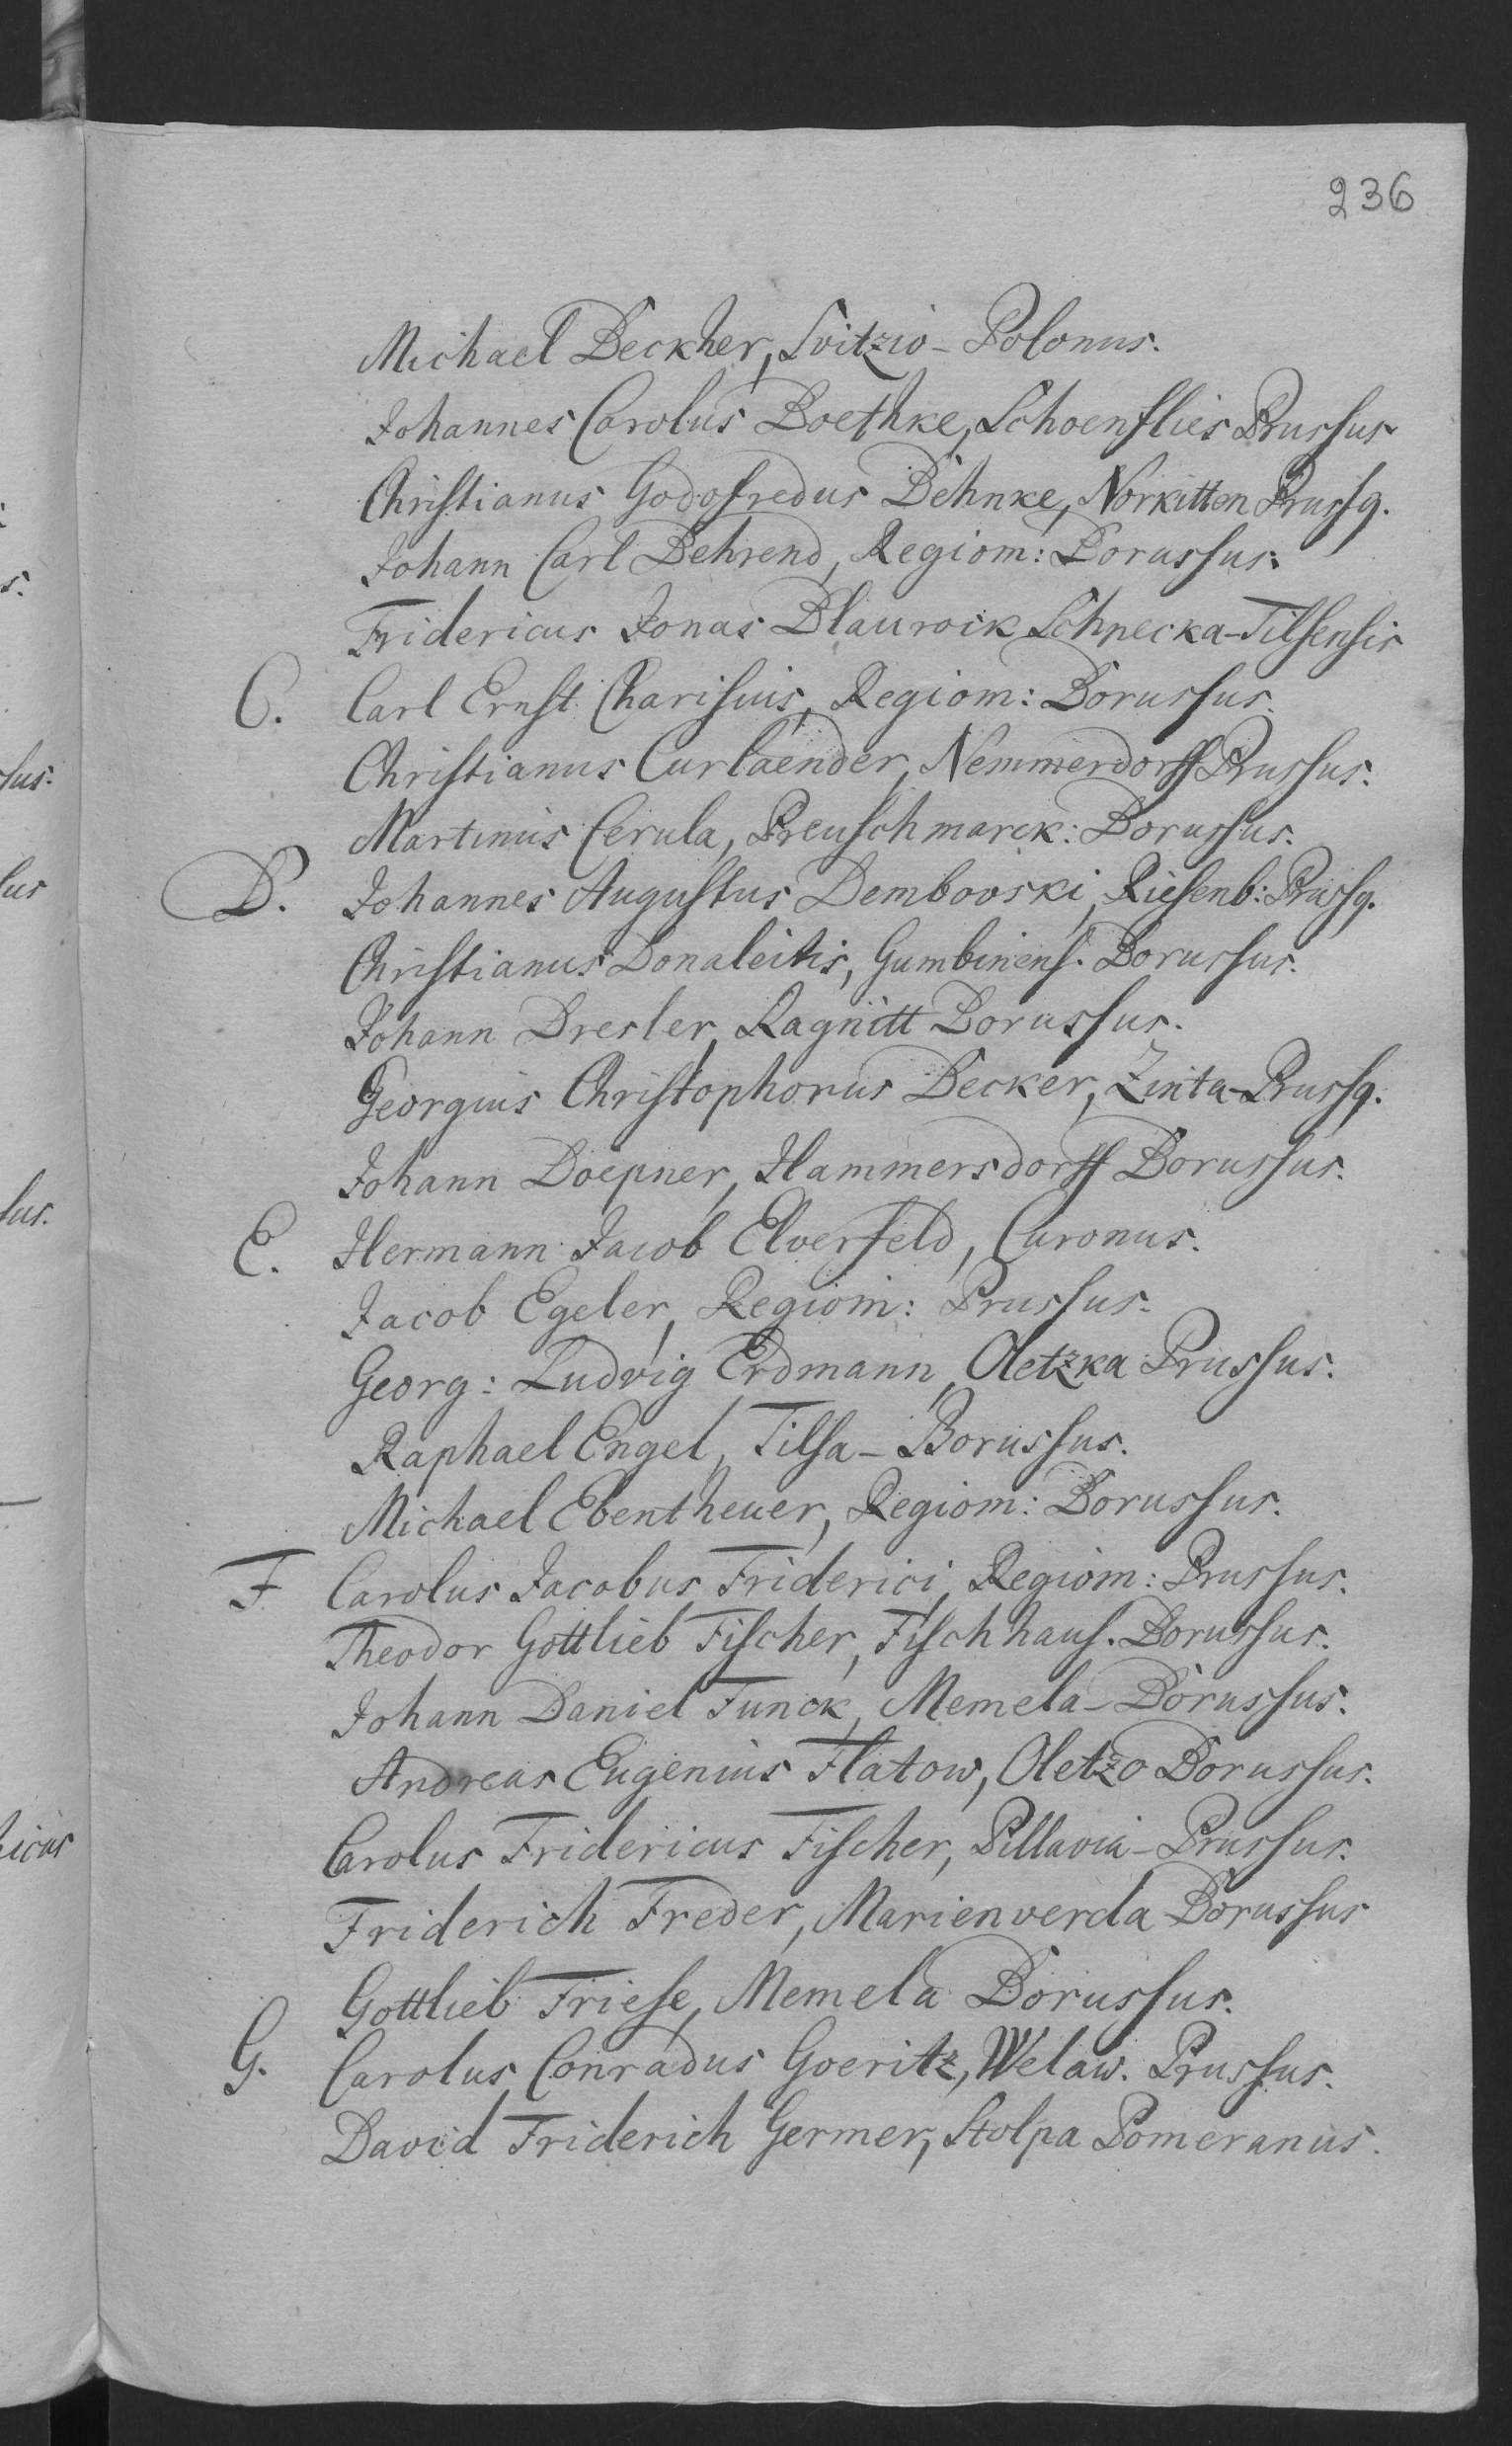 236
Michael Beckher, Svitzio - Polonus.
Johannes Carolus Boethke, Schoenflies Prussus
Christianus Godofredus Behnke, Norkitten Prussq.
Johann Carl Behrend, Regiom: Borussus.
Fridericus Jonas Blaurock Schnecka-Tilsensis
C. Carl Ernst Charisius, Regiom: Borussus.
Christianus Curlaender, Nemmerdorff Prussus.
Martinus Cerula, Preuschmarck: Borussus.
D. Johannes Augustus Dembovski, Riesenb: Prussq.
Christianus Donaleitis, Gumbinens. Borussus.
Johann Dresler, Ragnitt Borussus.
Georgius Christophorus Decker, Zinta-Prussq.
Johann Doepner, Hammersdorff Borussus.
E. Hermann Jacob Elverfeld, Curonus.
Jacob Egeler, Regiom: Prussus.
Georg: Ludvig Erdmann, Oletzka Prussus.
Raphael Engel, Tilsa - Borussus.
Michael Ebentheuer, Regiom: Borussus.
F Carolus Jacobus Friderici, Regiom: Prussus.
Theodor Gottlieb Fischer, Fischhaus. Borussus.
Johann Daniel Funck, Memela - Borussus.
Andreas Eugenius Flatow, Oletzo Borussus.
Carolus Fridericus Fischer, Pillavia - Prussus.
Friderich Freder, Marienverda Borussus
Gottlieb Friese, Memela Borussus.
G. Carolus Conradus Goeritz, Welaw. Prussus.
David Friderich Germer, Stolpa Pomeranus.